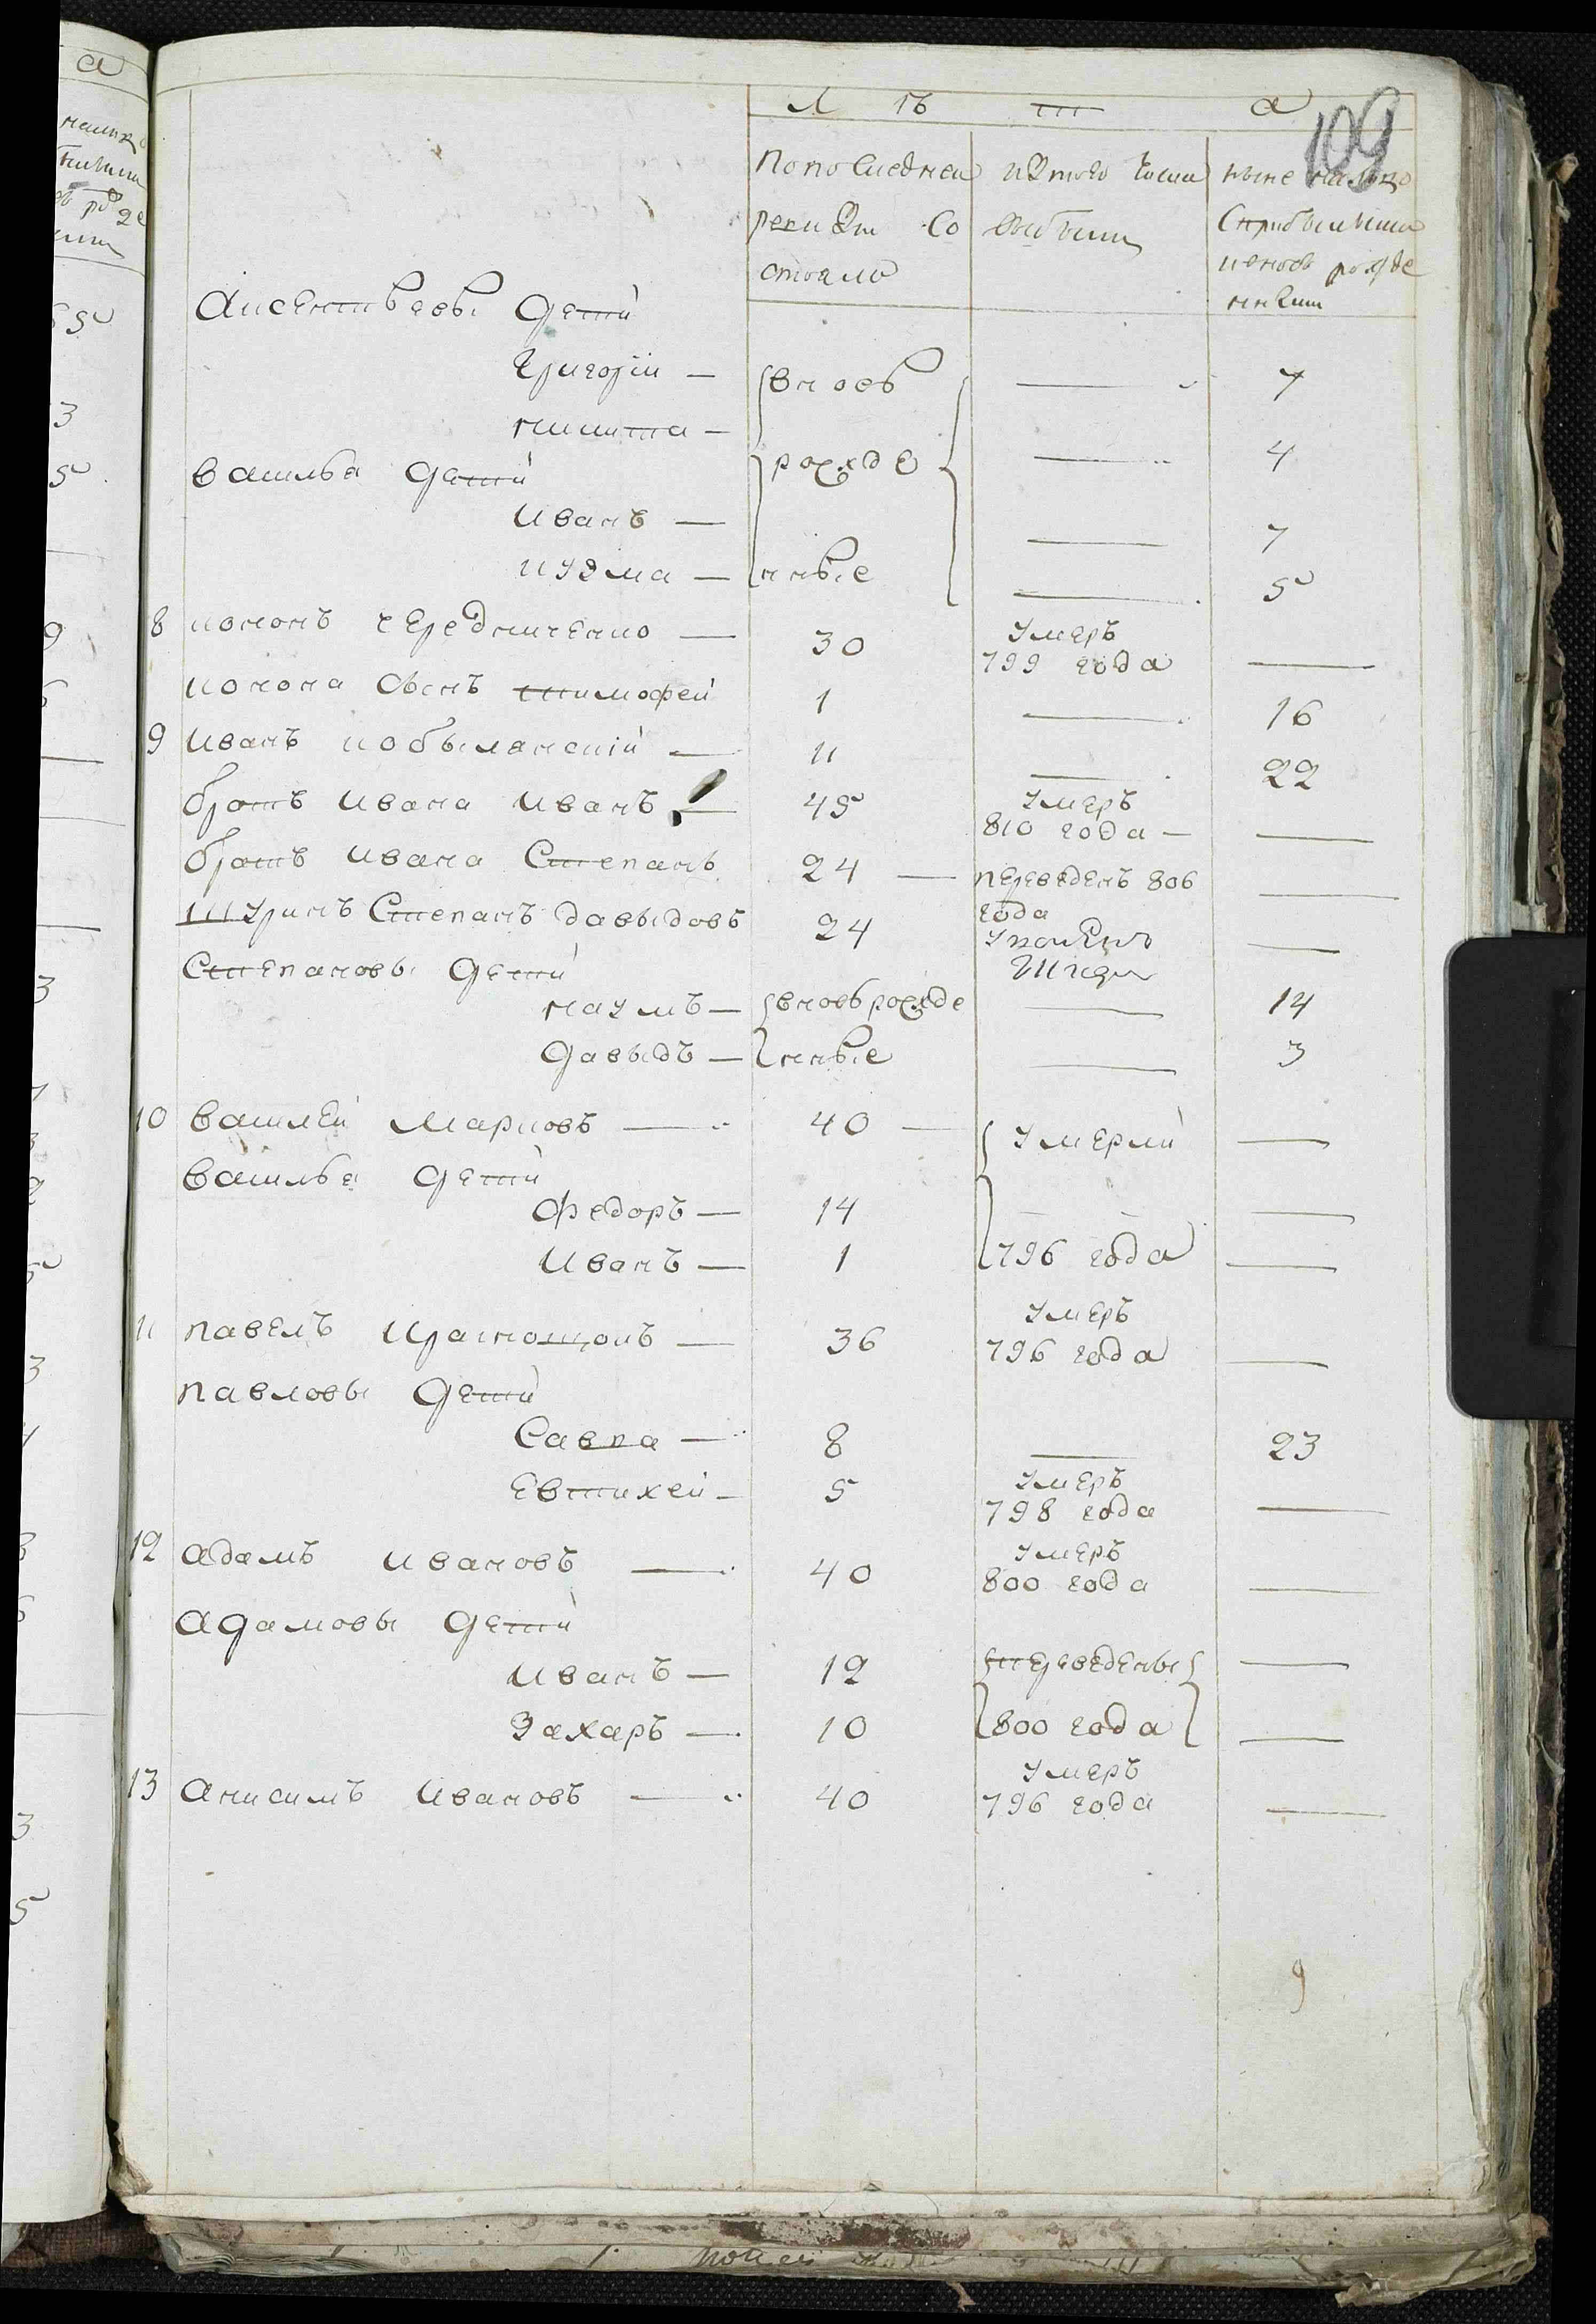 109
Л Ѣ Т А
По последней ревизіи состояло
изъ того числа выбыло
ныне налицо с прибылыми и вновь рожденными
Аксентьевы дети
Григорій — вновь — 7
никита — 4
василья дети рожде
Иванъ — 7
кузма — нные — 5
8 кононъ чередниченко — 30 умеръ 799 года —
конона сынъ тимофей 1 — 16
9 Иванъ кобылянскій — 11 — 22
братъ Ивана Иванъ — 45 умеръ 810 года —
братъ Ивана Степанъ 24 — переведенъ 806 года —
Шуринъ Степанъ давыдовъ 24 —
Степановы дети
наумъ — вновь рожде — 14
давыдъ — нные — 3
10 василей Марковъ — 40 — умерли —
василья дети
Федоръ — 14 —
Иванъ — 1 796 года —
11 павелъ краснощокъ — 36 умеръ 796 года —
павловы дети
Савка — 8 — 23
Евтихей — 5 умеръ 798 года —
12 адамъ Ивановъ — 40 умеръ 800 года —
адамовы дети
Иванъ — 12 переведены —
Захаръ — 10 800 года —
13 анисимъ Ивановъ — 40 умеръ 796 года —
9